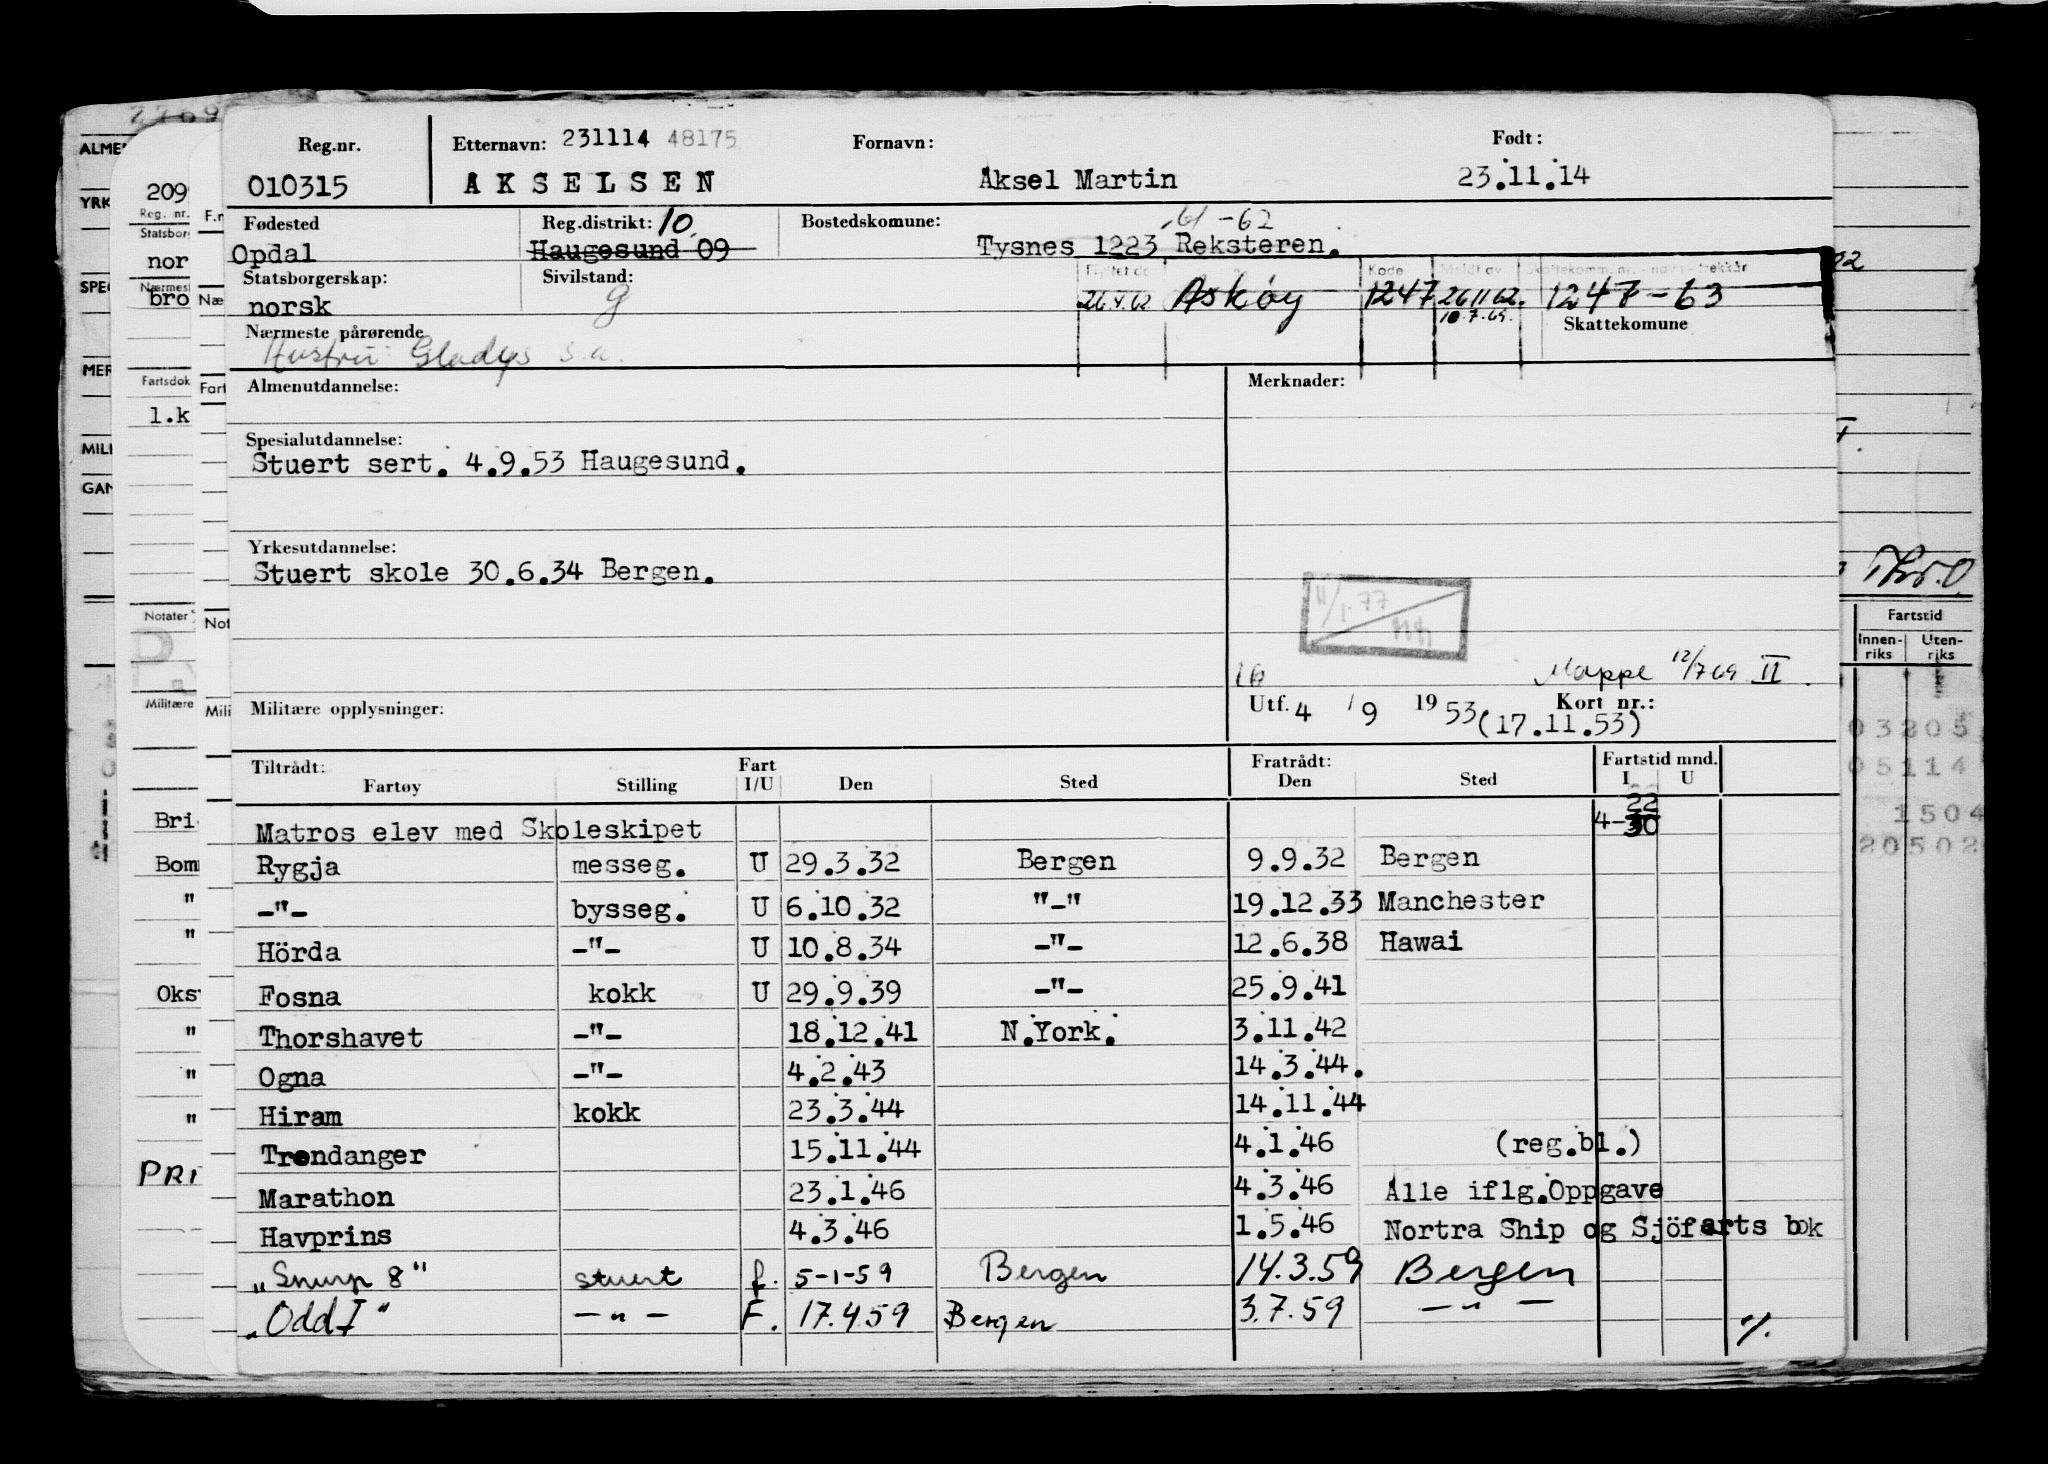 Reg.nr. Etternavn: 231114 48175 Fornavn: Født:
010315 AKSELSEN Aksel Martin 23.11.14
Fødested Reg.distrikt: 10 Bostedskomune: 61-62
Opdal Haugesund 09 Tysnes 1223 Reksteren.
Statsborgerskap: Sivilstand: Kode
norsk g 26.4.62 Askøy 1247 26.11.62. 1247-63
10.7.69.
Nærmeste pårørende Skattekomune
Hustru Gladys s.a.
Almenutdannelse: Merknader:
Spesialutdannelse:
Stuert sert. 4.9.53 Haugesund.
Yrkesutdannelse:
Stuert skole 30.6.34 Bergen.
11/1-77
Mappe 12/7 69 II
Militære opplysninger: Utf. 4 / 9 19 53 (17.11.53) Kort nr.:
Tiltrådt: Fart Fratrådt: Fartstid mnd.
Fartøy Stilling I/U Den Sted Den Sted I U
22
Matros elev med Skoleskipet 4-30
Rygja messeg. U 29.3.32 Bergen 9.9.32 Bergen
-"- bysseg. U 6.10.32 "-" 19.12.33 Manchester
Hörda -"- U 10.8.34 -"- 12.6.38 Hawai
Fosna kokk U 29.9.39 -"- 25.9.41
Thorshavet -"- 18.12.41 N.York. 3.11.42
Ogna -"- 4.2.43 14.3.44.
Hiram kokk 23.3.44 14.11.44
Trondanger 15.11.44 4.1.46 (reg.bl.)
Marathon 23.1.46 4.3.46 Alle iflg.Oppgave
Havprins 4.3.46 1.5.46 Nortra Ship og Sjöfarts bok
"Snurp 8" stuert f. 5-1-59 Bergen 14.3.59 Bergen
"Odd I" -"- F. 17.4.59 Bergen 3.7.59 -"-
ALMEN
YRK
SPEC
MER
MILI
GAN
209
Reg. nr.
Statsbor
nor
Nærmest
bro
Fartsdok
1.k
Notater
Militære
Bri
Bom
"
"
Oks
"
"
"
PRI
F.n
Næ
Fart
Not
Mili
Thr.O
Fartstid
Innen-riks Uten-riks
03205
05114
1504
20502